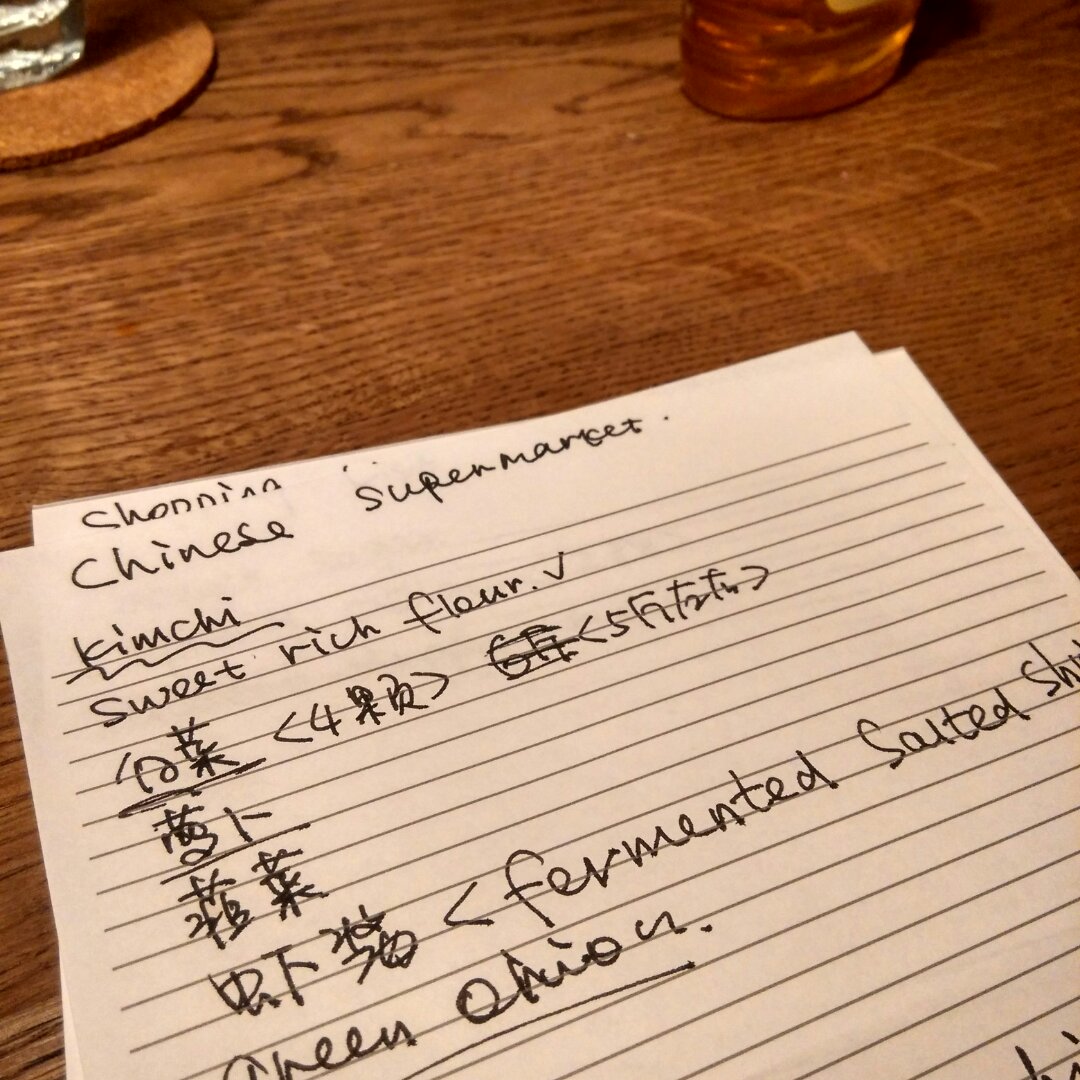 Shopping
Chinese supermarket.
kimchi
sweet rich flour. ✓
白菜 <4颗> <5斤左右>
萝卜
韭菜
虾酱 <fermented salted
Green onion.